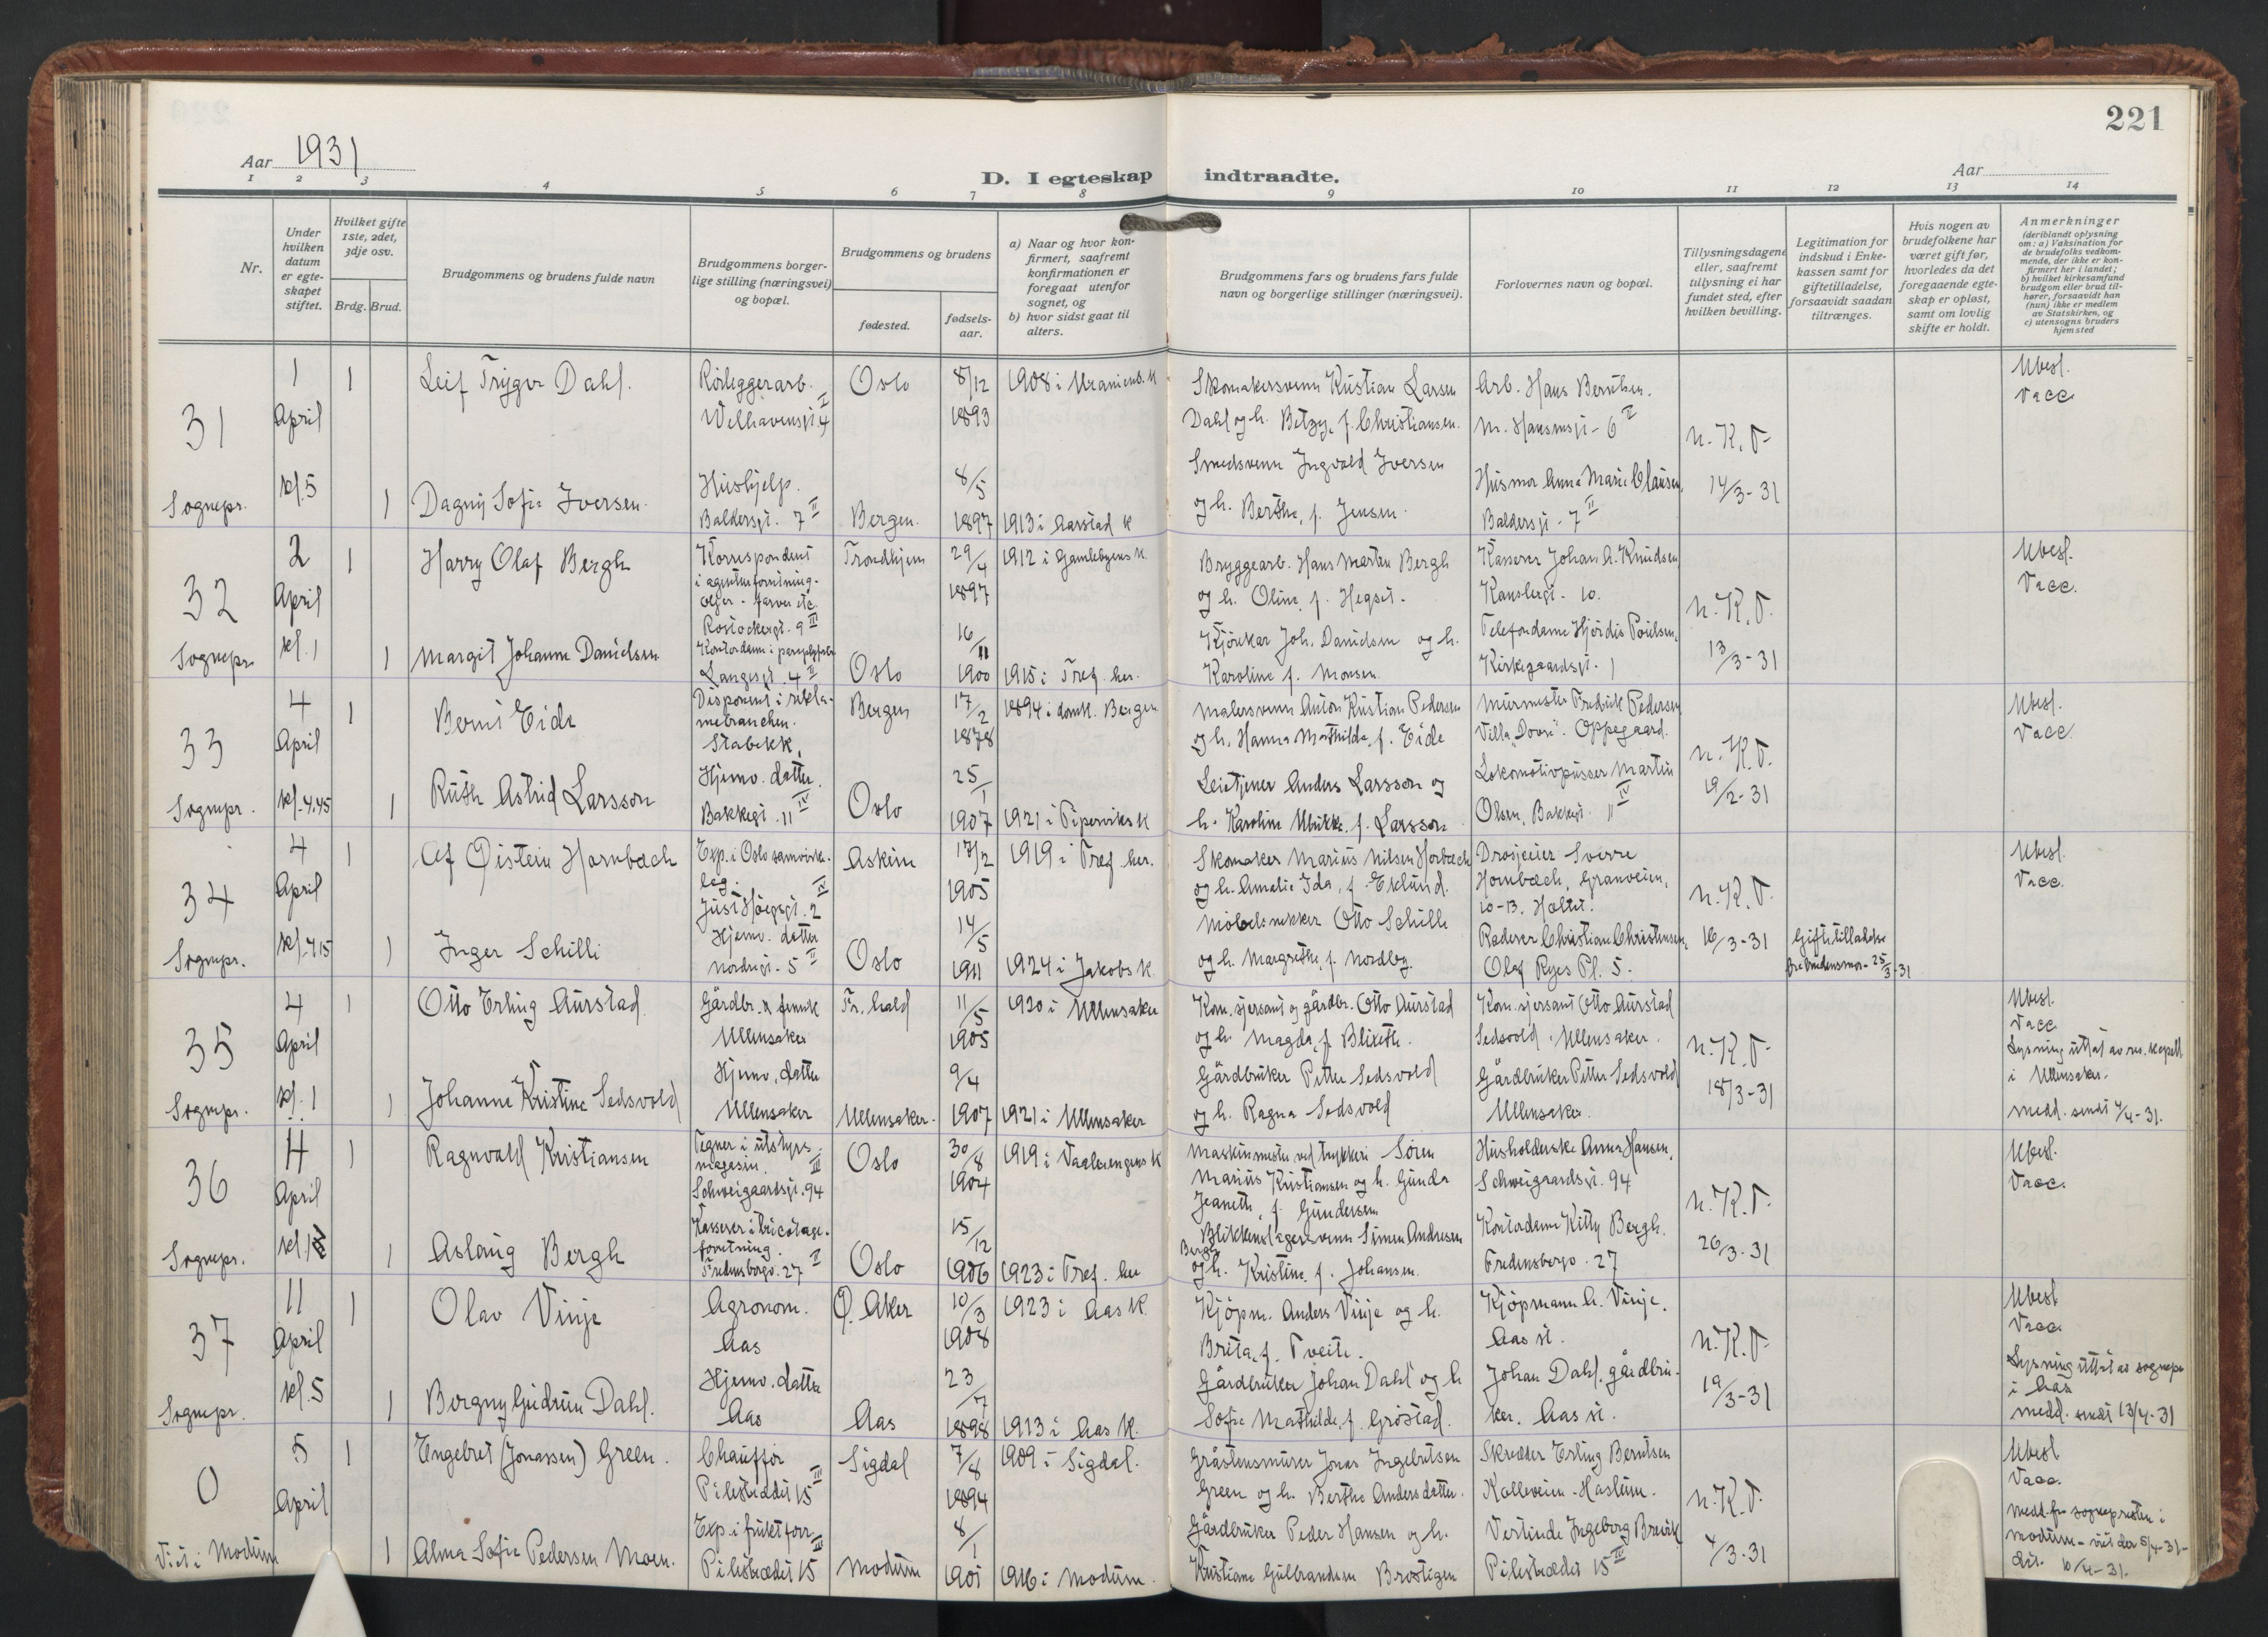 221
Aar 1931
D. I egteskap indtraadte.
Aar
1 2 3 4 5 6 7 8 9 10 11 12 13 14
Nr.
Under hvilken datum er egte-skapet stiftet.
Hvilket gifte 1ste, 2det, 3dje osv.
Brdg. Brud.
Brudgommens og brudens fulde navn
Brudgommens borger-lige stilling (næringsvei) og bopæl.
Brudgommens og brudens
fødested.
fødsels-aar.
a) Naar og hvor kon-firmert, saafremt konfirmationen er foregaat utenfor sognet, og
b) hvor sidst gaat til alters.
Brudgommens fars og brudens fars fulde navn og borgerlige stillinger (næringsvei).
Forlovernes navn og bopæl.
Tillysningsdagene eller, saafremt tillysning ei har fundet sted, efter hvilken bevilling.
Legitimation for indskud i Enke-kassen samt for giftetilladelse, forsaavidt saadan tiltrænges.
Hvis nogen av brudefolkene har været gift før, hvorledes da det foregaaende egte-skap er opløst, samt om lovlig skifte er holdt.
Anmerkninger
(deriblandt oplysning om: a) Vaksination for de brudefolks vedkom-mende, der ikke er kon-firmert her i landet; b) hvilket kirkesamfund brudgom eller brud til-hører, forsaavidt han (hun) ikke er medlem av Statskirken, og c) utensogns bruders hjemsted
31 Sognepr.
1 April kl. 5
1 Leif Trygve Dahl.
Rørleggerarb. Welhavensgt. 4 II
Oslo 8/12 1893
1908 i Uranienb. K
Skomakersvenn Kristian Larsen
Dahl og h. Betzy, f. Christiansen.
Arb. Hans Berntsen.
M. Hansensgt - 6 II
n. K. T. 14/3-31
Ubesl.
Vacc.
1 Dagny Sofie Iversen.
Hushjelp. Baldersgt. 7 II
Bergen. 8/5 1897
1913 i Aarstad K
Smedsvenn Ingvald Iversen
og h. Berthe, f. Jensen.
Husmor Anna Marie Clausen,
Baldersgt - 7 II
32 Sognepr.
2 April kl. 1
1 Harry Olaf Bergh
Korrespondent
i agenturforretning.
oljer - farver etc.
Rostockergt. 9 III
Trondhjem 29/4 1897
1912 i Gamlebyens K.
Bryggearb. Hans Martin Bergh
og h. Oline, f. Hegset.
Kasserer Johan A. Knudsen
Kanslergt. 10.
n. K. T. 13/3-31
Ubesl.
Vacc.
1 Margit Johanne Danielsen
Langesgt. 4 II
Oslo 16/11 1900
1915 i Tref. her.
Kjørekar Joh. Danielsen og h.
Karoline f. Monsen.
Telefondame Hjørdis Poulsen,
Kirkegaardsgt. 1
33 Sognepr.
4 April kl. 4.45
1 Berni Eide
Disponent i rekla-
mebranchen.
Stabekk,
Bergen 17/2 1878
1894 i domk. Bergen
Malersvenn Anton Kristian Pedersen
og h. Hanna Mathilde, f. Eide
Murmester Fredrik Pedersen
Villa "Dovre". Oppegaard.
n. K. T. 19/2-31
Ubesl.
Vacc.
1 Ruth Astrid Larsson
Hjemv. datter.
Bakkegt. 11 IV
Oslo 25/1 1907
1921 i Pipervikens K
Leietjener Anders Larsson og
h. Karoline Ulrikke, f. Larsson
Lokomotivpusser Martin
Olsen, Bakkegt. 11 IV
34 Sognepr.
4 April kl. 4.15
1 Alf Øistein Hornbæch
Exp. i Oslo samvirke-
lag.
Just Høegsgt. 2 IV
Askim 17/2 1905
1919 i Tref. her.
Skomaker Marius Nilsen Horbæch
og h. Amalie Ida, f. Eklund.
Drosjeeier Sverre
Hornbæch, Granveien,
10-B. Holtet.
n. K. T. 16/3-31
Ubesl.
Vacc.
1 Inger Schilli
Hjemv. datter
Nordregt. 5 II
Oslo 14/5 1911
1924 i Jakobs K.
Møbelsnekker Otto Schille
og h. Margrethe, f. Nordby.
Raderer Christian Christensen,
Olaf Ryes Pl. 5.
Giftetilladelse
fra brudens mor - 25/3-31
35 Sognepr.
4 April kl. 1
1 Otto Erling Aurstad
Gårdbr. & fenrik
Ullensaker
Fr. hald 11/5 1905
1920 i Ullensaker
Kom. sjersant og gårdbr. Otto Aurstad
og h. Magda, f. Blixeth.
Kom. sjersant Otto Aurstad
Sedsvold. Ullensaker.
n. K. T. 18/3-31
Ubesl.
Vacc
Lysning uttat av res. kapell.
i Ullensaker.
1 Johanne Kristine Sedsvold
Hjemv. datter
Ullensaker
Ullensaker. 9/4 1907
1921 i Ullensaker
Gårdbruker Petter Sedsvold
og h. Ragna Sedsvold
Gårdbruker Petter Sedsvold
Ullensaker.
medd. sendt 7/4-31.
36 Sognepr.
4 April kl. 1
1 Ragnvald Kristiansen
Tegner i utstyrs-
magasin.
Schweigaardsgt. 94 III
Oslo 30/8 1904
1919 i Vaalerengens K
Maskinmester ved trykkeri Søren
Marius Kristiansen og h. Gunda
Jeaneth, f. Gundersen
Husholderske Anna Hansen,
Schweigaardsgt. 94
n. K. T. 26/3-31
Ubesl.
Vacc.
1 Aslaug Bergh
Kasserer i tricotage-
forretning.
Fredensborgv. 27 II
Oslo 15/12 1906
1923 i Tref. her
Blikkenslagersvenn Simen Andresen
Bergh
og h. Kristine, f. Johansen.
Kontordame Kitty Bergh.
Fredensborgv. 27
37 Sognepr.
11 April kl. 5
1 Olav Vinje
Agronom.
Aas
Ø. Aker 10/3 1908
1923 i Aas K.
Kjøpm. Anders Vinje og h.
Brita, f. Tveite.
Kjøpmann A. Vinje.
Aas st.
n. K. T. 19/3-31
Ubesl
Vacc.
Lysning uttat av sognepr
i Aas
medd. sendt 13/4-31
1 Bergny Gudrun Dahl.
Hjemv. datter
Aas
Aas 23/7 1898
1913 i Aas K.
Gårdbruker Johan Dahl og h
Sofie Mathilde, f. Grøstad.
Johan Dahl, gårdbru-
ker. Aas st.
0 Viet i Modum
5 April
1 Engebret (Jonassen) Green.
Chauffør
Pilestrædet 15 III
Sigdal 7/8 1894
1909 i Sigdal.
Gråstensmurer Jonas Ingebretsen
Green og h. Berthe Andersdatter.
Skredder Erling Berntsen
Kolleveien - Haslum.
n. K. T. 4/3-31
Ubesl
Vacc.
medd. fra sognepresten i
Modum - viet der 5/4-31-
dat. 10/4-31.
1 Alma Sofie Pedersen Moen.
Exp. i fruktforr.
Pilestrædet 15 III
Modum 8/1 1901
1916 i Modum.
Gårdbruker Peder Hansen og h.
Kristiane Gulbrandsen Brostigen
Vertinde Ingeborg Brevik
Pilestrædet 15 IV